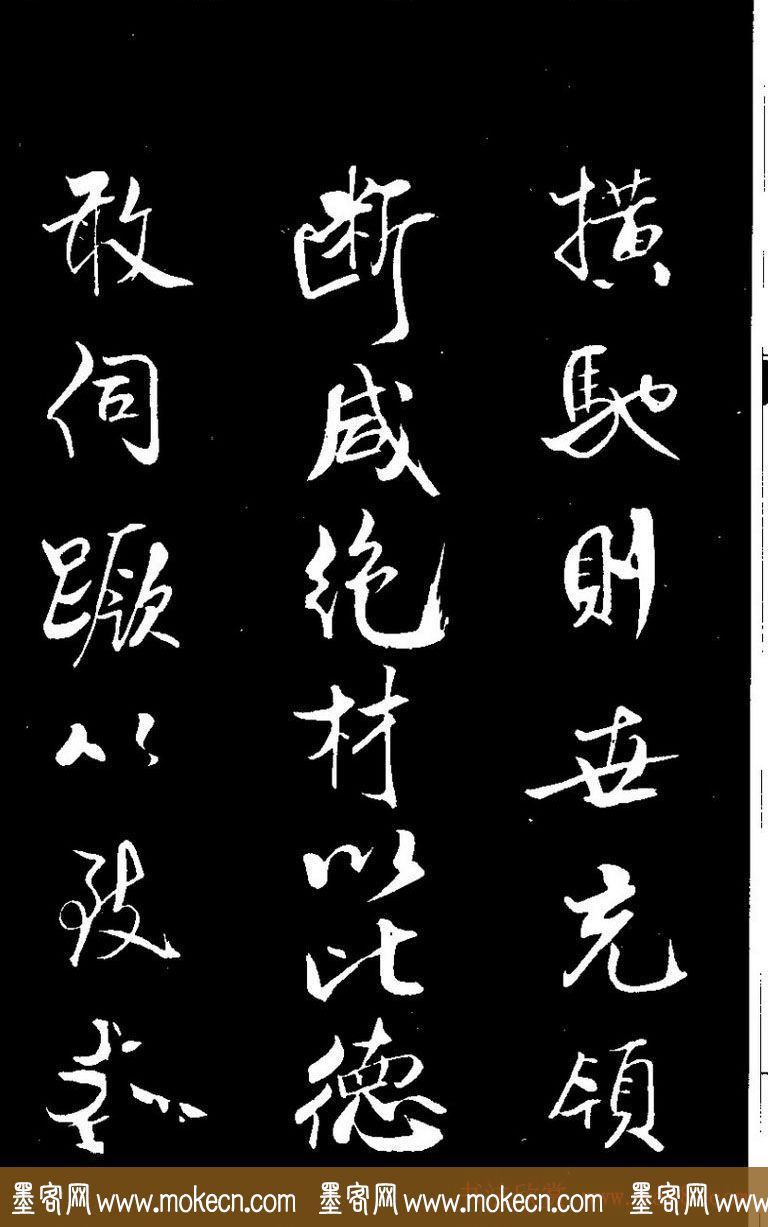 横馳則世充領
断咸绝材以比德
敢伺蹶以致
墨客网 www.mokecn.com 墨客网 www.mokecn.com 墨客网 www